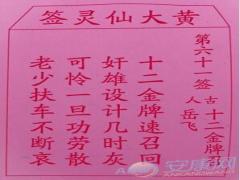 黄大仙灵签
第六十一签
古人
十二金牌召
岳飞
十二金牌速召回
奸雄设计几时灰
可怜一旦功劳散
老少扶车不断哀
安康网